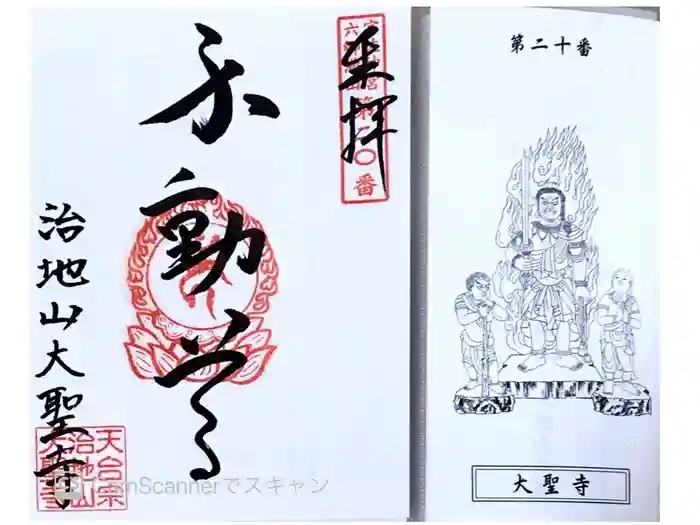 奉拝
第二〇番
不動尊
治地山大聖寺
天台宗
治地山
大聖寺
CamScannerでスキャン
第二十番
大聖寺